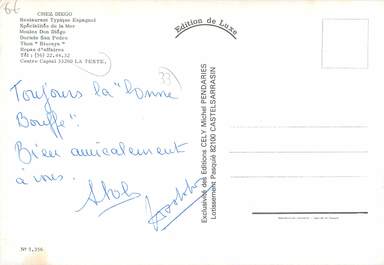 66
CHEZ DIEGO
Restaurant Typique Espagnol
Spécialités de la Mer
Moules Don Diégo
Dorade San Pedro
Thon "Biscaya"
Repas d'affaires
Tél : (56) 22.44.32
Centre Captal 33260 LA TESTE.
33
Toujours la "bonne
Bouffe".
Bien amicalement
à vous.
N° 1.356
Edition de Luxe
Exclusivité des Editions CELY Michel PENDARIES
Lotissement Pasquié 82100 CASTELSARRASIN